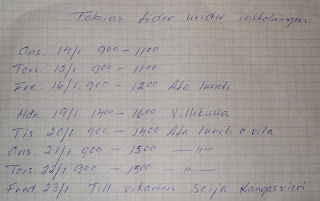 Tobias tider under inskolningen.
Ons. 14/1 900 – 1100
Tors. 15/1 900 – 1100
Fre. 16/1. 900 – 1200 Äta lunch
Mån. 19/1 1400 – 1600 Villekulla
Tis 20/1 900 – 1400 Äta lunch o vila
Ons. 21/1 900 – 1500 —"—
Tors 22/1 900 – 1500 —"—
Fred 23/1 Till vikarien Seija Kangasvieri